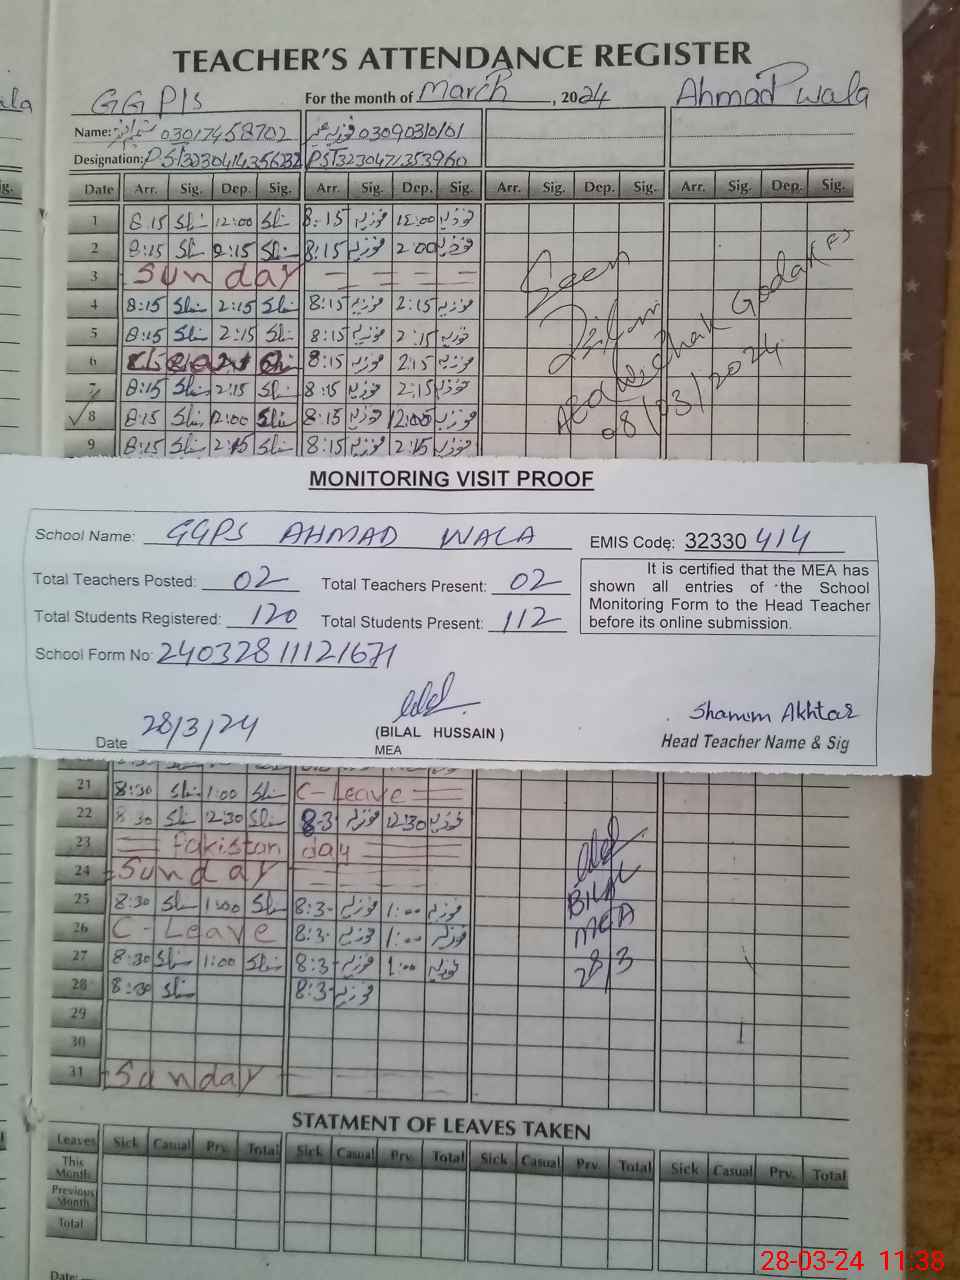 TEACHER'S ATTENDANCE REGISTER
GGP/s For the month of March, 2024 Ahmad Pwala
Name: 03017458702 فوزیہ 0309031010
Designation: PST PST
Date Arr. Sig. Dep. Sig. Arr. Sig. Dep. Sig. Arr. Sig. Dep. Sig. Arr. Sig. Dep. Sig.
1 8:15 12:00 8:15 فوزیہ 12:00 فوزیہ
2 8:15 2:15 8:15 فوزیہ 2:00 فوزیہ
3 Sunday
4 8:15 2:15 8:15 فوزیہ 2:15 فوزیہ
5 8:15 2:15 8:15 فوزیہ 2:15 فوزیہ
6 8:15 فوزیہ 2:15 فوزیہ
7 8:15 2:15 8:15 فوزیہ 2:15 فوزیہ
8 8:15 12:00 8:15 فوزیہ 12:00 فوزیہ
9 8:15 2:15 8:15 فوزیہ 2:15 فوزیہ
Seen
08/03/2024
MONITORING VISIT PROOF
School Name: GGPS AHMAD WALA
EMIS Code: 32330 414
Total Teachers Posted: 02 Total Teachers Present: 02
Total Students Registered: 120 Total Students Present: 112
It is certified that the MEA has
shown all entries of the School
Monitoring Form to the Head Teacher
before its online submission.
School Form No: 24032811121671
Date 28/3/24
(BILAL HUSSAIN)
MEA
Shamim Akhtar
Head Teacher Name & Sig
21 8:30 1:00 C-Leave
22 8:30 12:30 8:3- فوزیہ 12:30 فوزیہ
23 Pakistan day
24 Sunday
25 8:30 1:00 8:3- فوزیہ 1:00 فوزیہ
26 C-Leave 8:3- فوزیہ 1:00 فوزیہ
27 8:30 1:00 8:3- فوزیہ 1:00 فوزیہ
28 8:30 8:3- فوزیہ
29
30
31 Sunday
BILAL
MEA
28/3
STATMENT OF LEAVES TAKEN
Leaves Sick Casual Prv. Total Sick Casual Prv. Total Sick Casual Prv. Total Sick Casual Prv. Total
This Month
Previous Month
Total
Date:
28-03-24 11:38